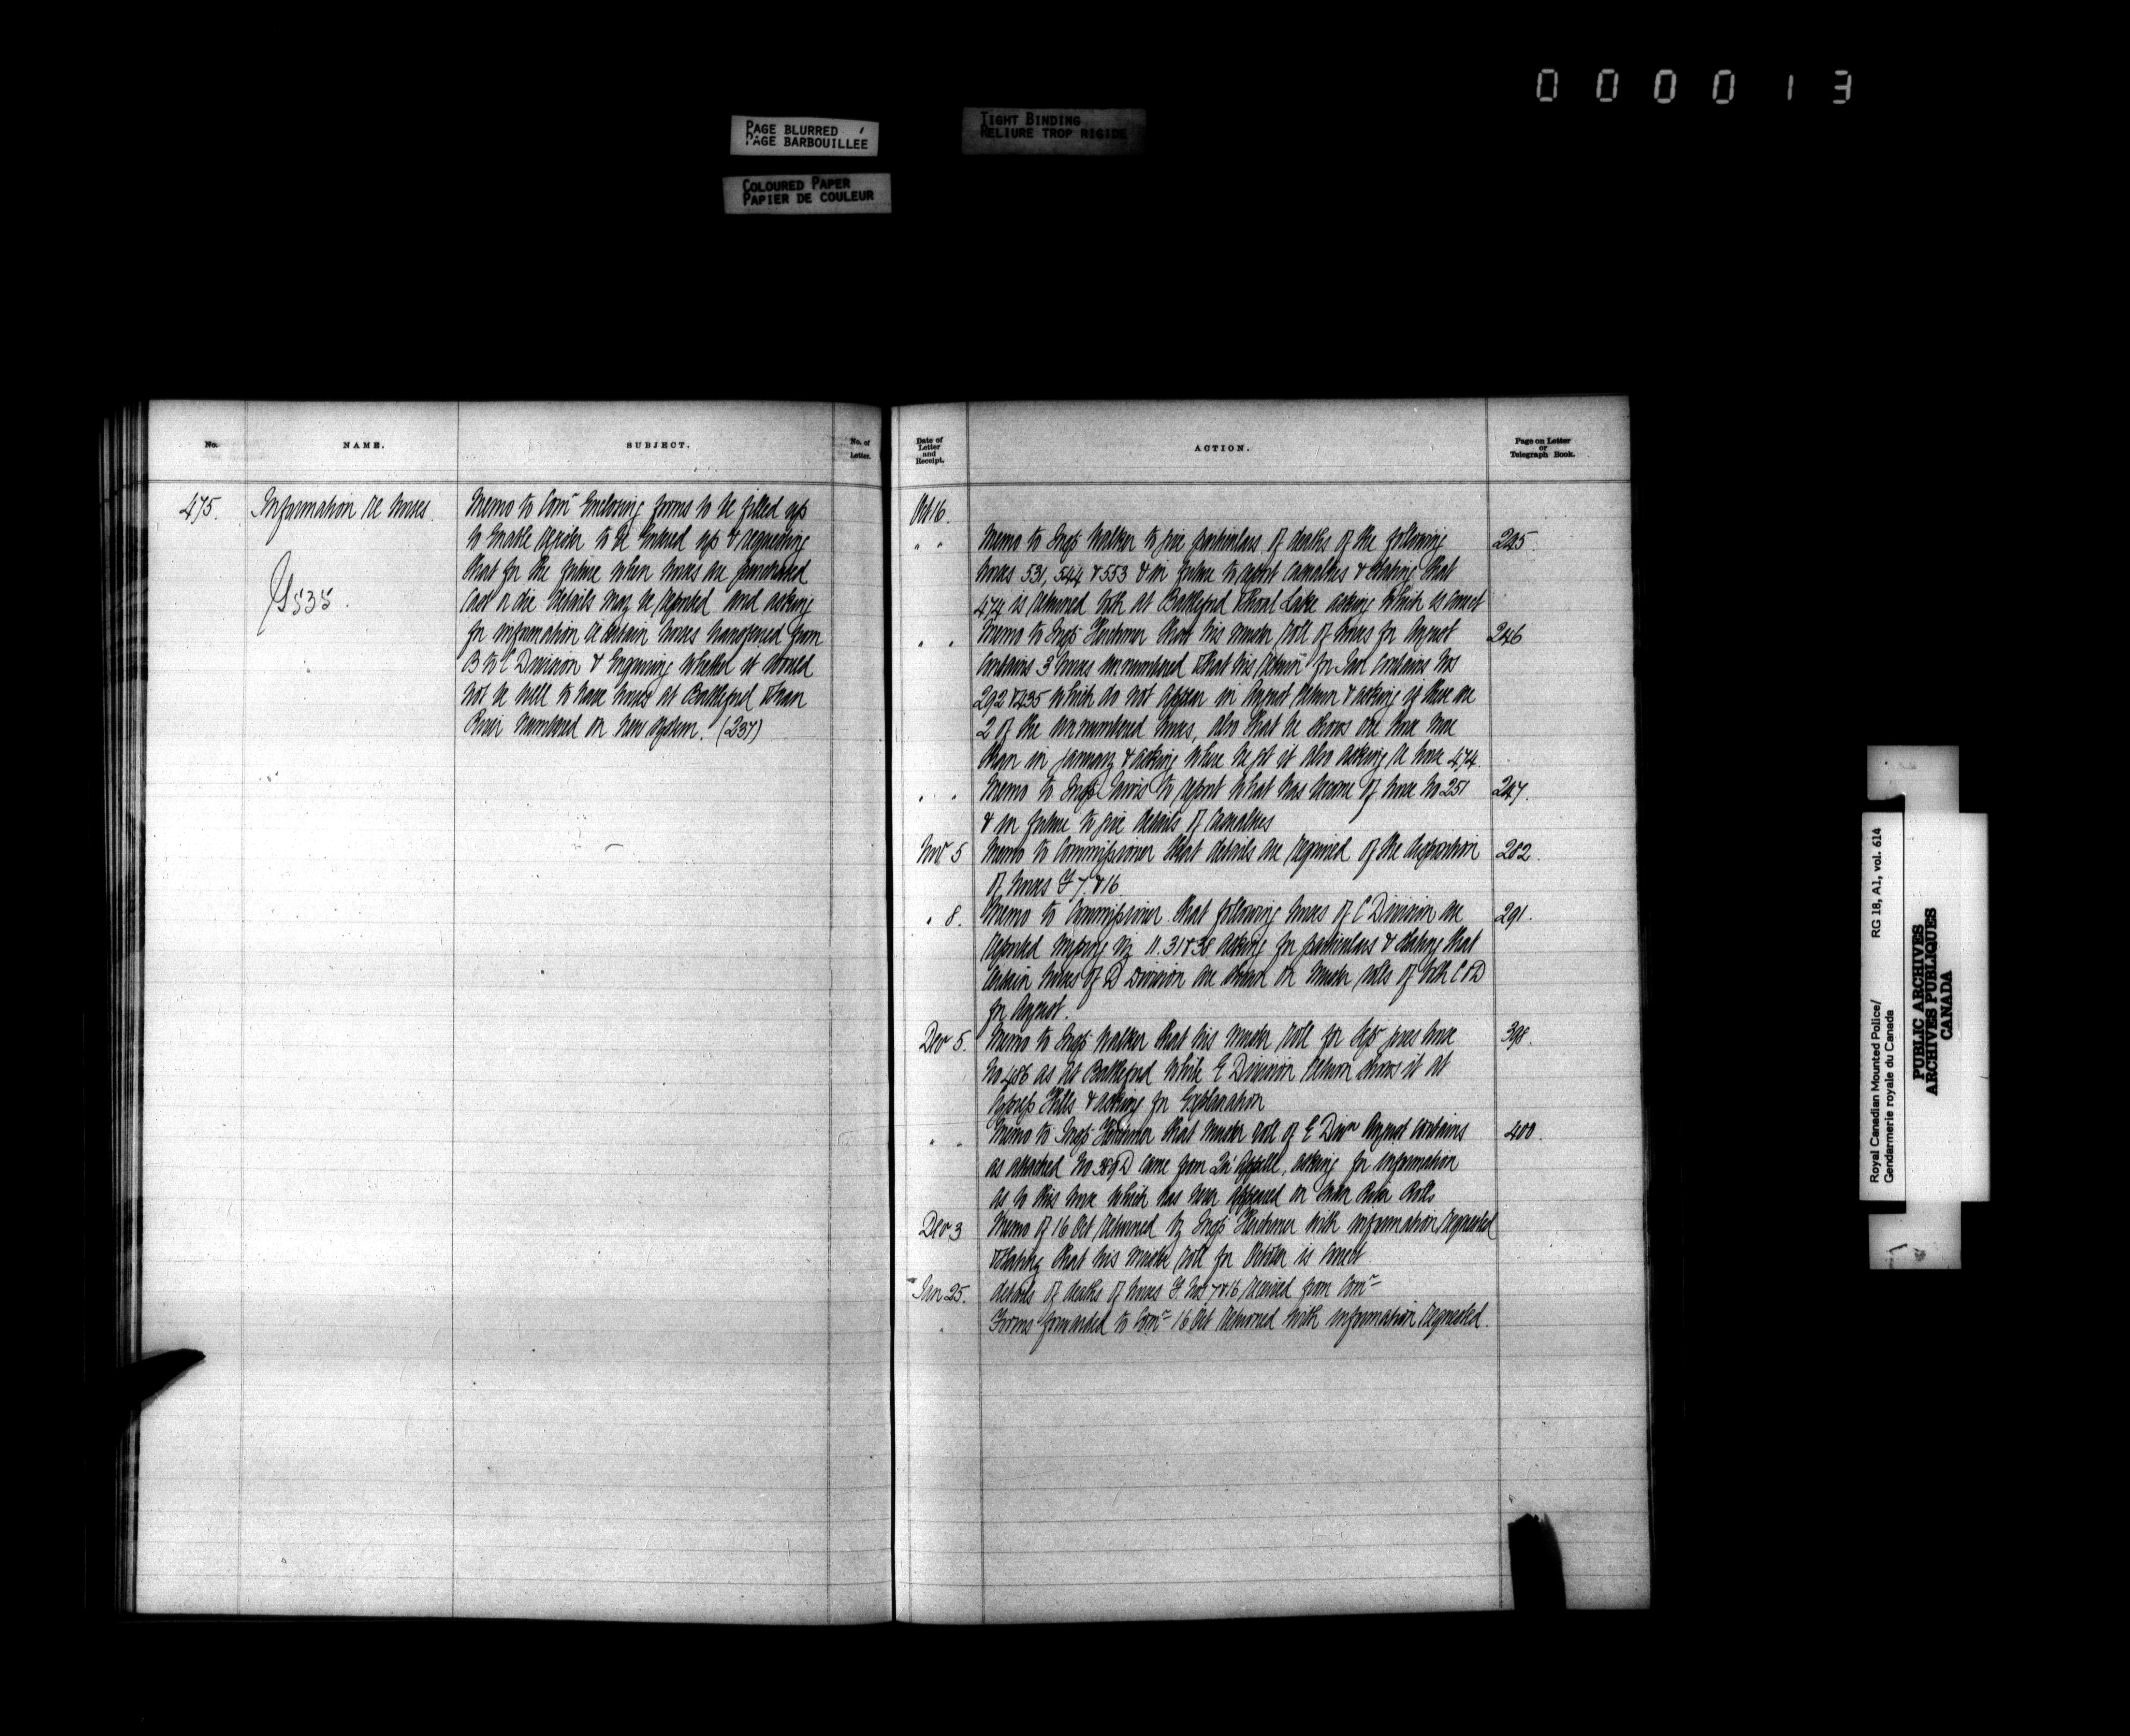 000013
PAGE BLURRED
PAGE BARBOUILLEE
TIGHT BINDING
RELIURE TROP RIGIDE
COLOURED PAPER
PAPIER DE COULEUR
No.
NAME.
SUBJECT.
No. of Letter.
475.
Information re horses.
535.
Memo to Comr Enclosing forms to be filled up
to Enable register to be Entered up & requesting
that for the future when horses are purchased
cast or die details may be reported and asking
for information re certain horses transferred from
B to C Division & Enquiring whether it would
not be well to have horses at Battleford & Swan
River Numbered on New System. (237)
Date of Letter and Receipt.
ACTION.
Page on Letter or Telegraph Book.
Oct 16.
" " Memo to Insp Walker to give particulars of deaths of the following 245.
horses 531, 544 & 553 & in future to report casualties & stating that
474 is returned both at Battleford & Shoal Lake asking which is correct
" " Memo to Insp Herchmer that his muster roll of horses for August 246
Contains 3 horses unnumbered & that his return for Jan contains Nos
292 & 435 which do not appear in August return & asking if these are
2 of the unnumbered horses, also that he shows one horse more
than in January & asking where he got it also asking re horse 474.
" " Memo to Insp Jarvis to report what has become of horse No 251 247.
& in future to give details of casualties
Nov 5 Memo to Commissioner that details are required of the disposition 282.
of horses F 7 & 16
" 8. Memo to Commissioner that following horses of C Division are 291.
reported missing viz 11. 31 & 38 asking for particulars & stating that
certain horses of D Division are shown on muster rolls of both C & D
for August.
Dec 5. Memo to Insp Walker that his muster roll for Sep gives horse 398.
No 486 as at Battleford while E Division return shows it at
Cypress Hills & asking for Explanation
" " Memo to Insp Herchmer that muster roll of E Divn August contains 400.
as attached No 389 D came from Qu'Appelle, asking for information
as to this horse which has never appeared on Swan River Rolls
Dec 3 Memo of 16 Oct returned by Insp Herchmer with information requested
& stating that his muster roll for October is correct.
Jan 25. details of deaths of horses F. Nos 7 & 16 received from Comr
" Forms forwarded to Comr 16 Oct returned with information requested.
Royal Canadian Mounted Police/
Gendarmerie royale du Canada
RG 18, A1, vol. 614
PUBLIC ARCHIVES
ARCHIVES PUBLIQUES
CANADA